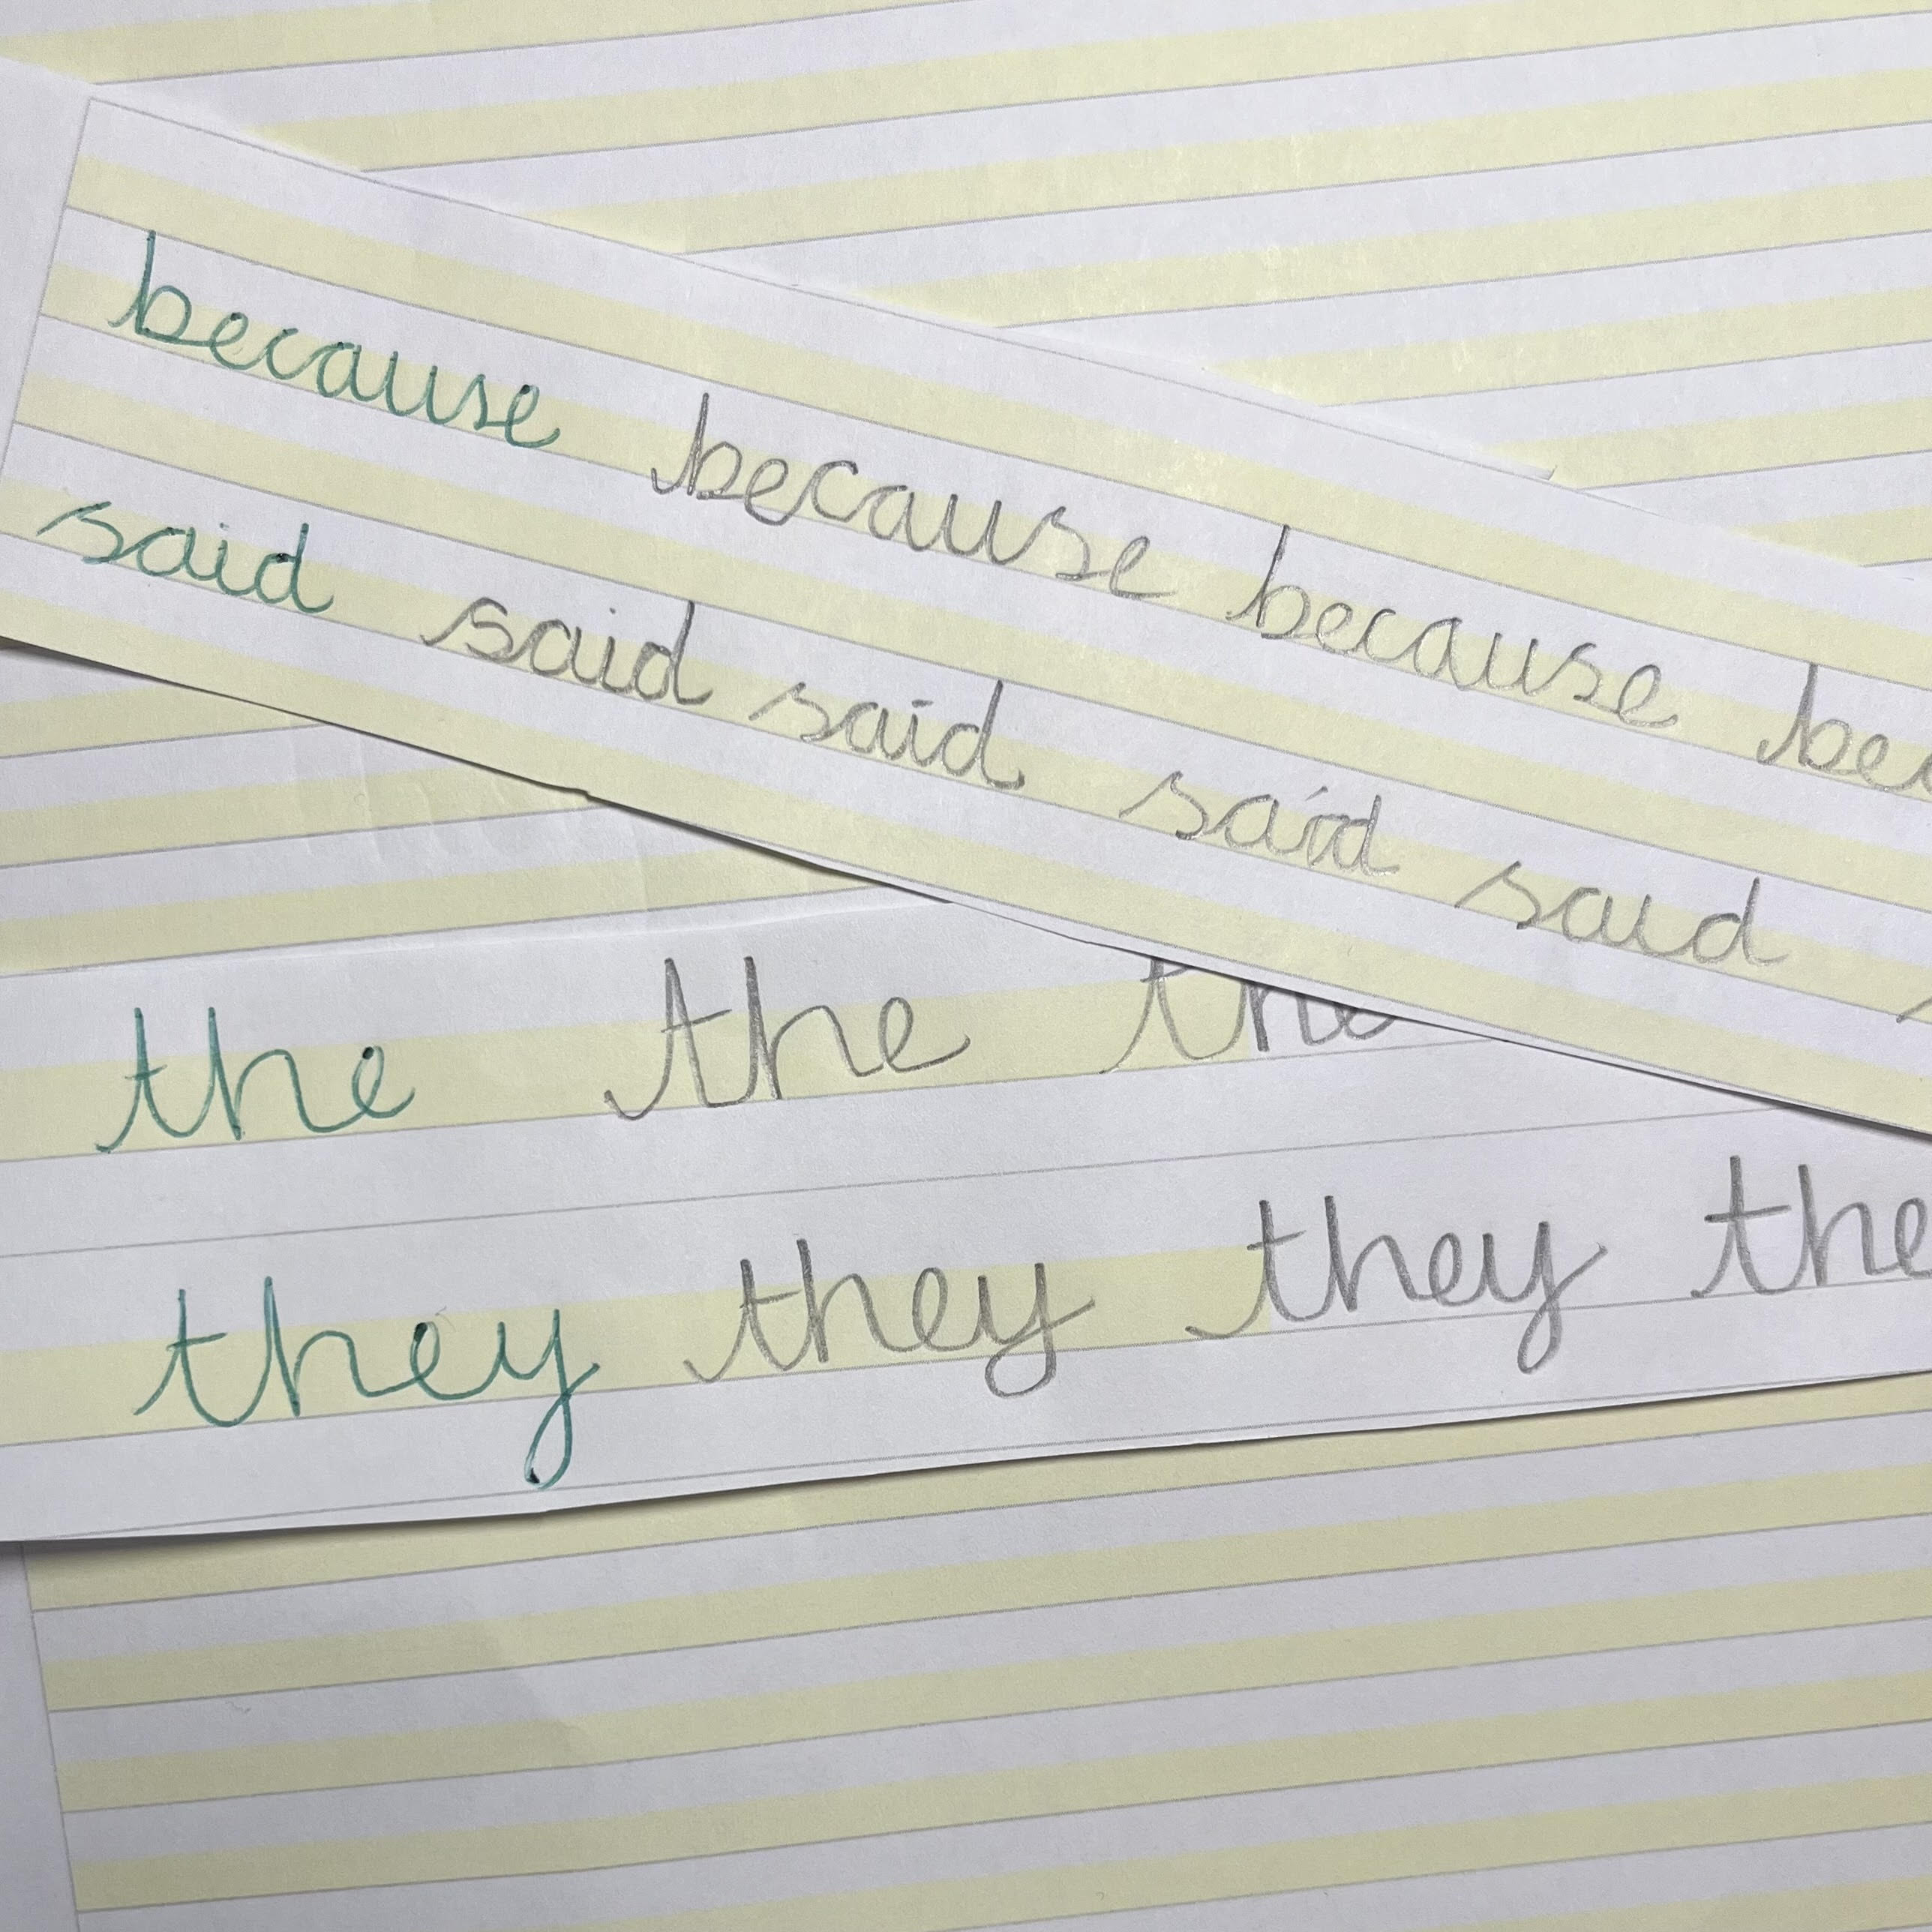 because because because bec
said said said said said
the the the
they they they the